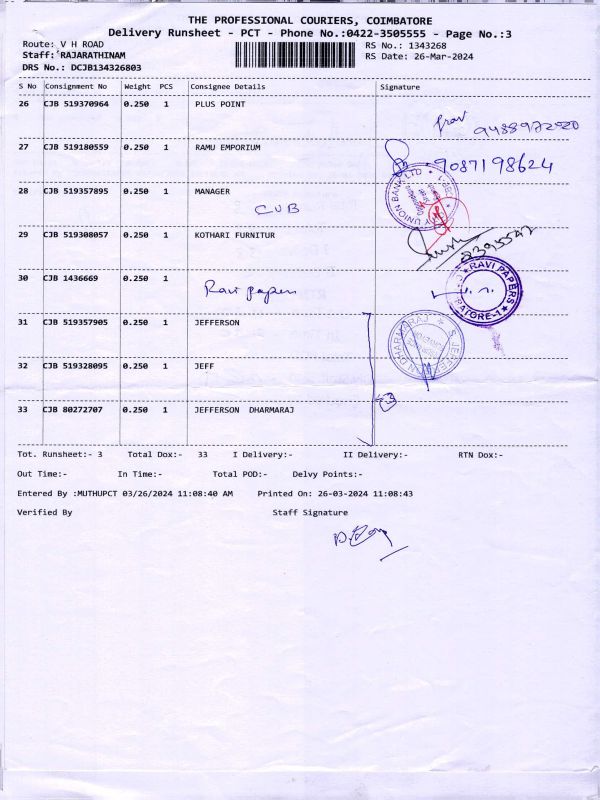 THE PROFESSIONAL COURIERS, COIMBATORE
Delivery Runsheet - PCT - Phone No.:0422-3505555 - Page No.:3
Route: V H ROAD RS No.: 1343268
Staff: RAJARATHINAM RS Date: 26-Mar-2024
DRS No.: DCJB134326803
S No Consignment No Weight PCS Consignee Details Signature
26 CJB 519370964 0.250 1 PLUS POINT
9488972020
27 CJB 519180559 0.250 1 RAMU EMPORIUM
9087198624
28 CJB 519357895 0.250 1 MANAGER
CUB
UNION BANK LTD
29 CJB 519308057 0.250 1 KOTHARI FURNITUR
30 CJB 1436669 0.250 1
Ravi papers
RAVI PAPERS
31 CJB 519357905 0.250 1 JEFFERSON
32 CJB 519328095 0.250 1 JEFF
33 CJB 80272707 0.250 1 JEFFERSON DHARMARAJ
Tot. Runsheet:- 3 Total Dox:- 33 I Delivery:- II Delivery:- RTN Dox:-
Out Time:- In Time:- Total POD:- Delvy Points:-
Entered By :MUTHUPCT 03/26/2024 11:08:40 AM Printed On: 26-03-2024 11:08:43
Verified By Staff Signature